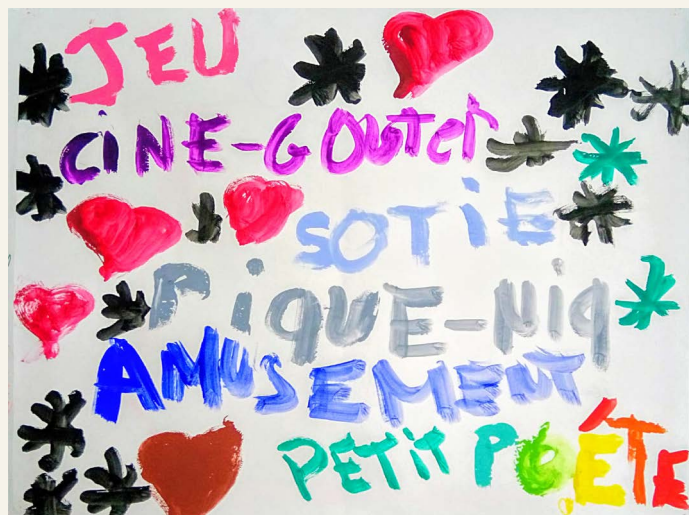 JEU
CiNE-GOUter
SOTiE
PiQUE-NiQ
AMUSEMENT
PETiT POÉTE